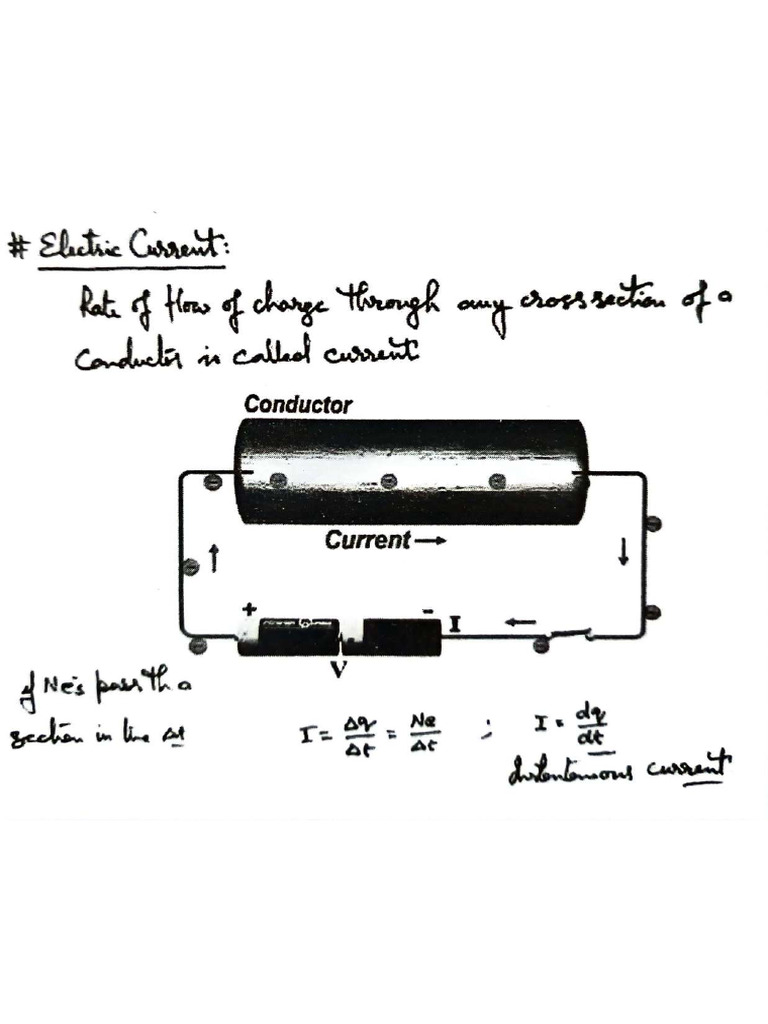 # Electric Current:
Rate of flow of charge through any cross section of a
Conductor is called current
Conductor
Current →
+
-
I
V
if Ne's pass th a
section in time Δt
I = Δq/Δt = Ne/Δt ; I = dq/dt
Instantaneous current